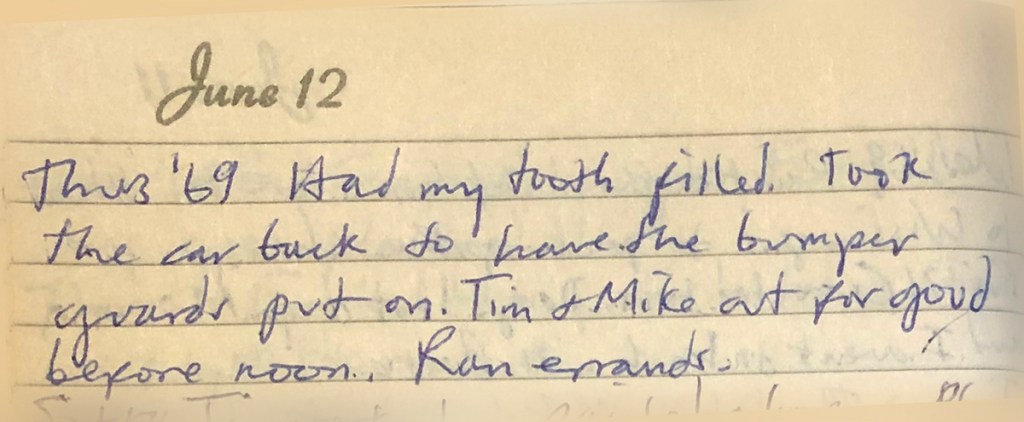 June 12
Thurs '69 Had my tooth filled. Took
the car back to have the bumper
guards put on. Tim + Mike out for good
before noon. Ran errands.